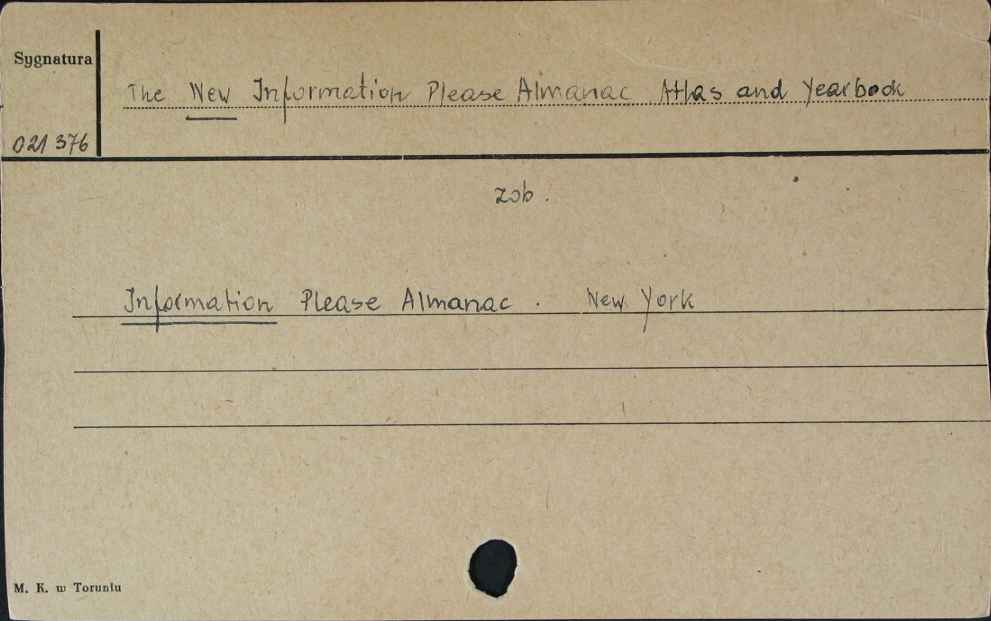 Sygnatura
The New Information Please Almanac Atlas and Yearbook
021 376
zob.
Information Please Almanac. New York
M. K. w Toruniu